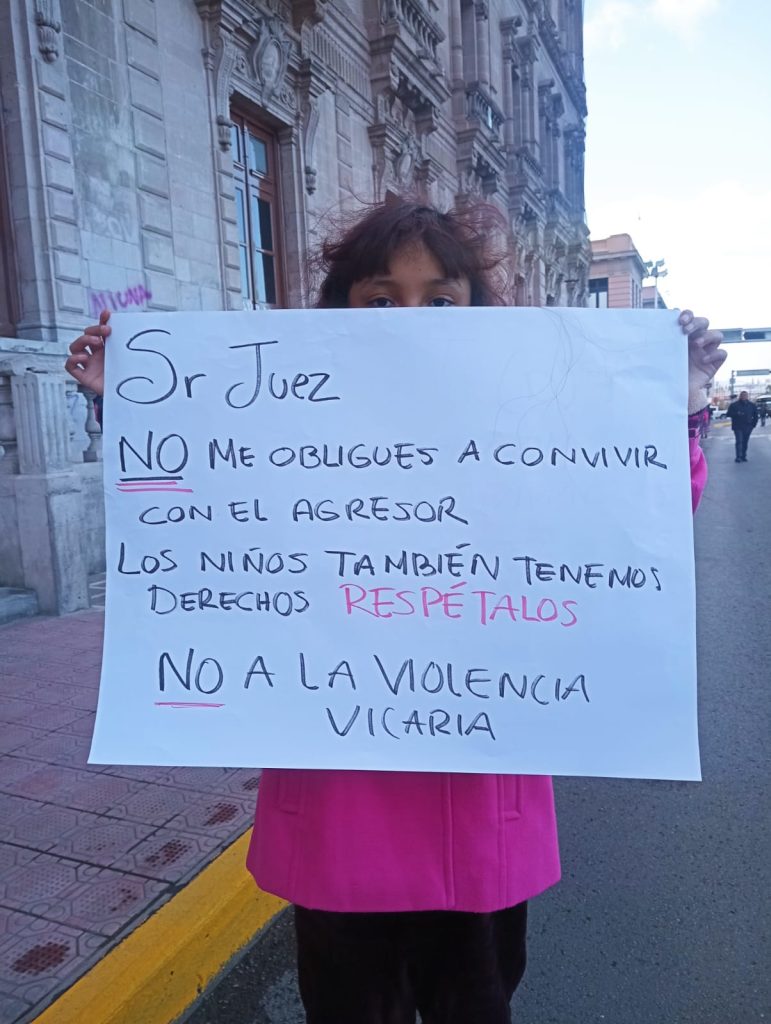 Sr Juez
NO ME OBLIGUES A CONVIVIR
CON EL AGRESOR
LOS NIÑOS TAMBIÉN TENEMOS
DERECHOS RESPÉTALOS
NO A LA VIOLENCIA
VICARIA